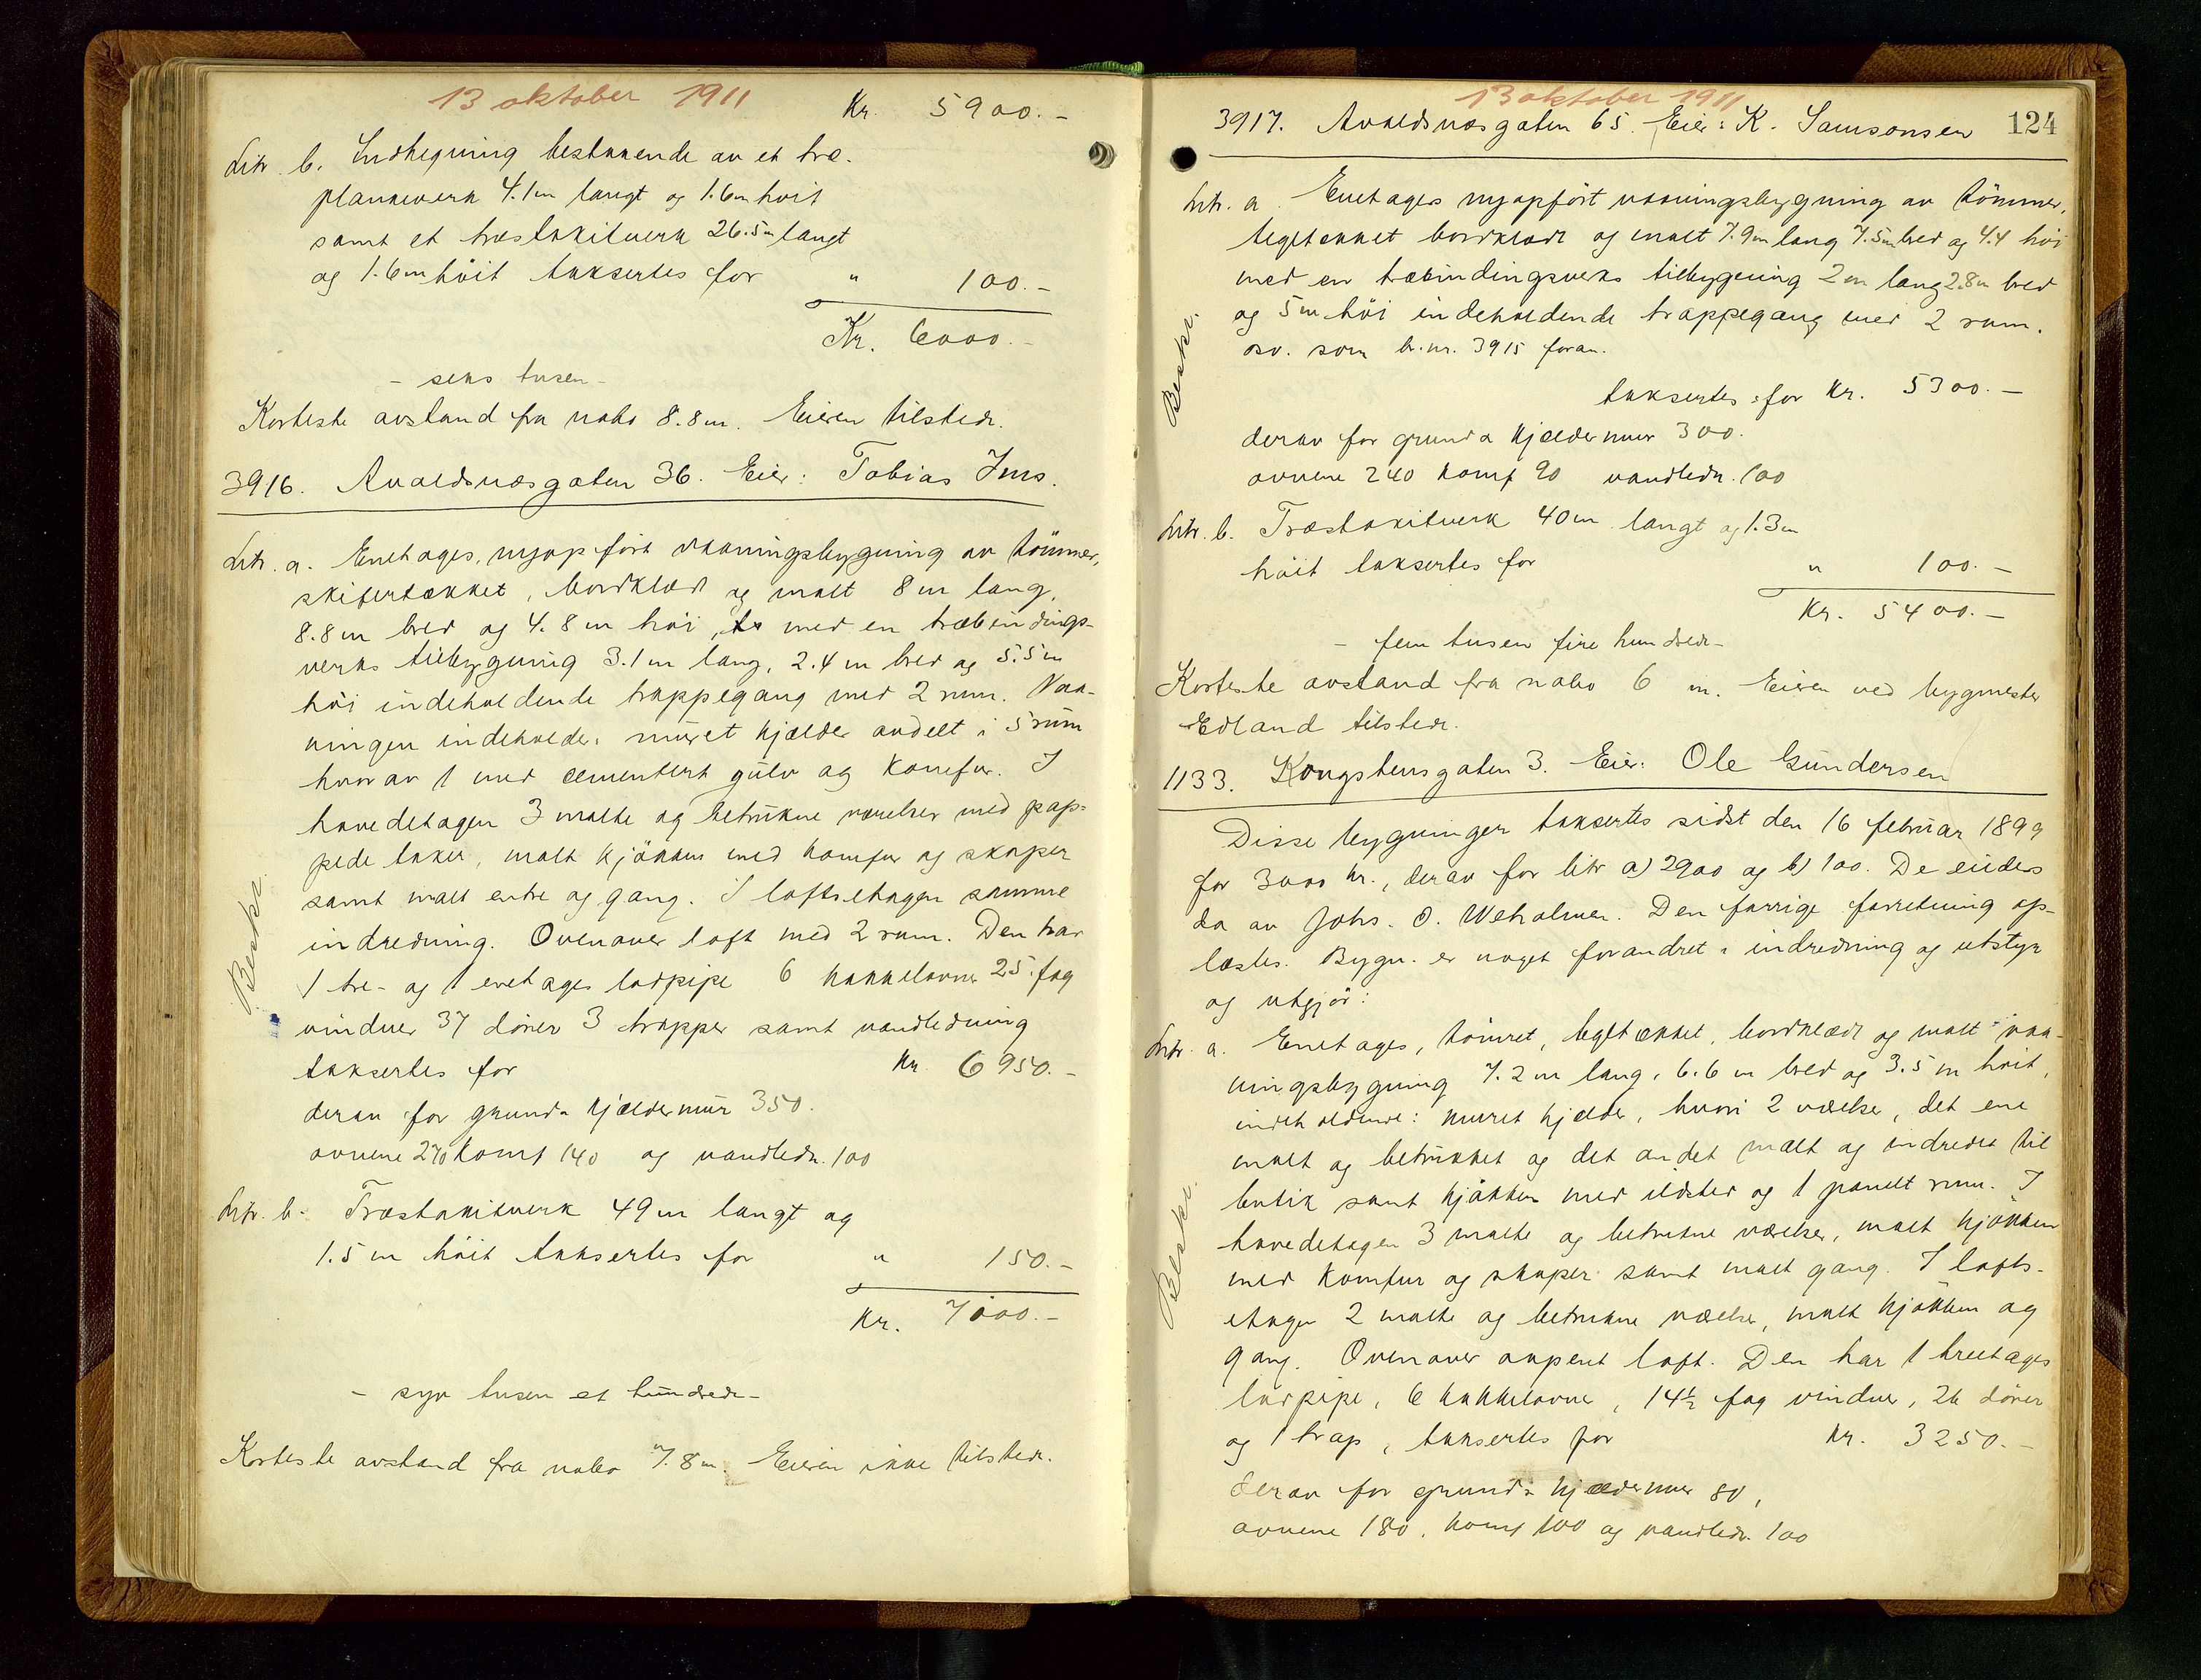 13 oktober 1911
Kr. 5900.-
Litr. b. Indhegning bestaaende av et træ-
plankeverk 4.1m langt og 1.6m høit
samt et træstakitverk 26.5m langt
og 1.6m høit taksertes for " 100.-
Kr. 6000.-
- seks tusen -
Korteste avstand fra nabo 8.8m. Eieren tilstede.
3916. Avaldsnæsgaten 36. Eier: Tobias Ims.
Litr. a. Enetages, nyopført vaaningsbygning av tømmer,
skifertækket, bordklædt og malt 8 m lang,
8.8 m bred og 4.8 m høi, med en træbindings-
verks tilbygning 3.1 m lang, 2.4 m bred og 5.5 m
høi indeholdende trappegang med 2 rum. Vaa-
ningen indeholder: muret kjælder avdelt i 5 rum
hvorav 1 med cementert gulv og komfur. I
hovedetagen 3 malte og betrukne værelser med gip-
sede taker, malt kjøkken med komfur og skaper
samt malt entre og gang. I loftsetagen samme
indredning. Ovenover loft med 2 rum. Den har
1 tre- og 1 enetages lodpipe 6 kakkelovne 25 fag
vinduer 37 dører 3 trapper samt vandledning
taksertes for Kr. 6950.-
derav for grund & kjældermur 350.
ovnene 270 komf 140 og vandledn. 100
Beskr.
Litr. b. Træstakitverk 49 m langt og
1.5 m høit taksertes for " 150.-
Kr. 7100.-
- syv tusen et hundrede -
Korteste avstand fra nabo 7.8 m. Eieren ikke tilstede.
13 oktober 1911
3917. Avaldsnæsgaten 65. Eier: K. Samsonsen 124
Litr. a. Enetages nyopført vaaningsbygning av tømmer,
tegltækket bordklædt og malt 7.9m lang 7.5m bred og 4.4 høi
med en træbindingsverks tilbygning 2m lang 2.8m bred
og 5m høi indeholdende trappegang med 2 rum.
osv. som br.nr. 3915 foran.
Beskr.
taksertes for Kr. 5300.-
derav for grund & kjældermur 300.
ovnene 240 komf 90 vandledn. 100
Litr. b. Træstakitverk 40m langt og 1.3m
høit taksertes for " 100.-
Kr. 5400.-
- fem tusen fire hundrede -
Korteste avstand fra nabo 6 m. Eieren ved bygmester
Edland tilstede.
1133. Kongstensgaten 3. Eier: Ole Gundersen
Disse bygninger taksertes sidst den 16 februar 1899
for 3000 kr., derav for litr a) 2900 og b) 100. De eiedes
da av Johs. O. Weholmen. Den forrige forretning op-
læstes. Bygn. er noget forandret i indredning og utstyr
og utgjør:
Litr. a. Enetages, tømret, tegltækket, bordklædt og malt vaa-
ningsbygning 7.2 m lang, 6.6 m bred og 3.5 m høit,
indeholdende: muret kjælder, hvori 2 værelser, det ene
malt og betrukket og det andet malt og indredet til
butik samt kjøkken med ildsted og 1 panelt rum. I
hovedetagen 3 malte og betrukne værelser, malt kjøkken
med komfur og skaper samt malt gang. I lofts-
etagen 2 malte og betrukne værelser, malt kjøkken og
gang. Ovenover aapent loft. Den har 1 treetages
lodpipe, 6 kakkelovne, 14½ fag vinduer, 26 dører
og 1 trap, taksertes for Kr. 3250.-
derav for grund & kjældermur 80,
ovnene 180, komf 100 og vandledn. 100
Beskr.